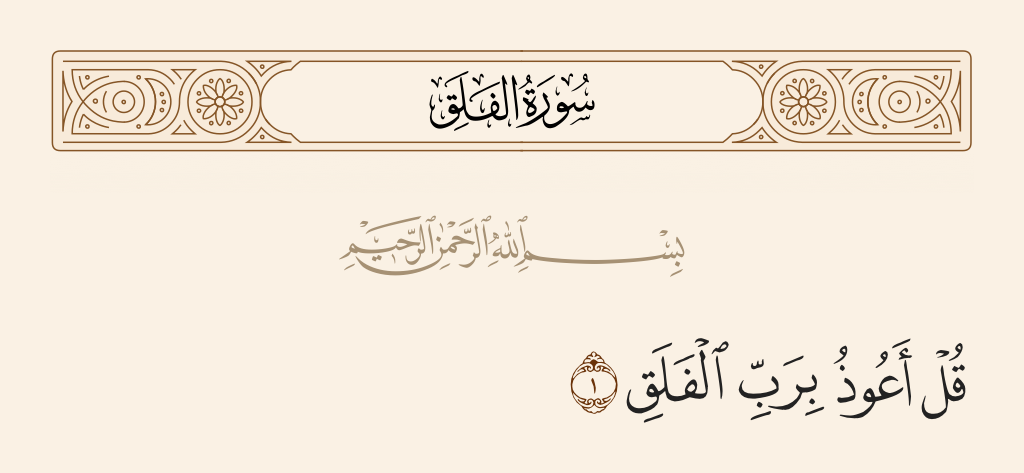 سُورَةُ الفَلَقِ
بِسْمِ ٱللَّهِ ٱلرَّحْمَٰنِ ٱلرَّحِيمِ
قُلْ أَعُوذُ بِرَبِّ ٱلْفَلَقِ ١